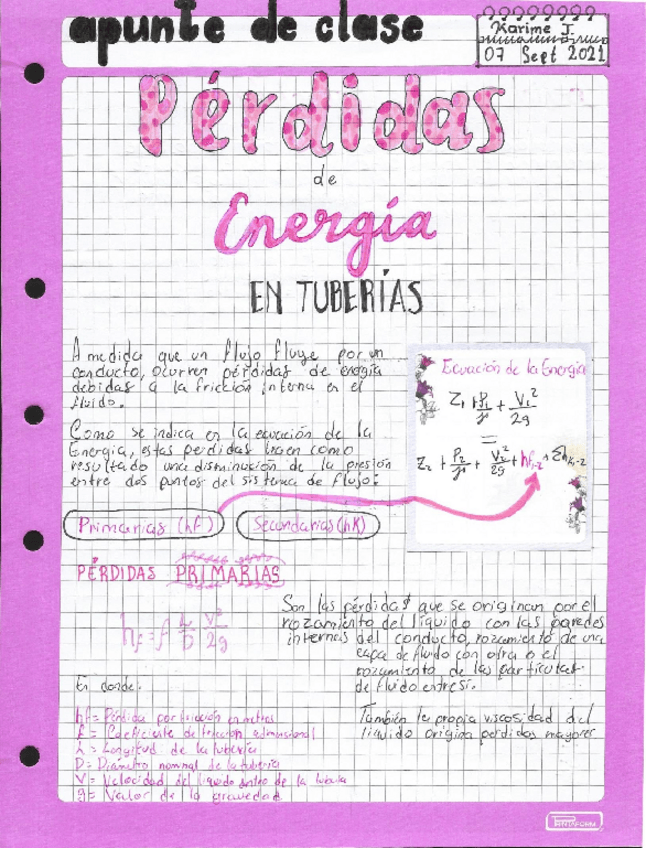 apunte de clase
Karime J.
07 Sept 2021
Pérdidas
de
Energía
EN TUBERÍAS
A medida que un flujo fluye por un
conducto, ocurren pérdidas de energía
debidas a la fricción interna en el
fluido.
Como se indica en la ecuación de la
Energía, estas perdidas traen como
resultado una disminución de la presión
entre dos puntos del sistema de flujo:
Ecuación de la Energía
Z₁ + P₁/γ + V₁²/2g
=
Z₂ + P₂/γ + V₂²/2g + hf₁₋₂ + Σhk₁₋₂
Primarias (hf) Secundarias (hK)
PÉRDIDAS PRIMARIAS
hf = f L/D V²/2g
Son las pérdidas que se originan por el
rozamiento del líquido con las paredes
internas del conducto, rozamiento de una
capa de fluido con otra o el
rozamiento de las particulas
de fluido entre sí.
También la propia viscosidad del
líquido origina perdidas mayores
En donde:
hf = Pérdida por fricción en metros
f = Coeficiente de fricción adimensional
L = Longitud de la tubería
D = Diámetro nominal de la tubería
V = Velocidad del liquido dentro de la tubería
g = Valor de la gravedad
PRINTAFORM